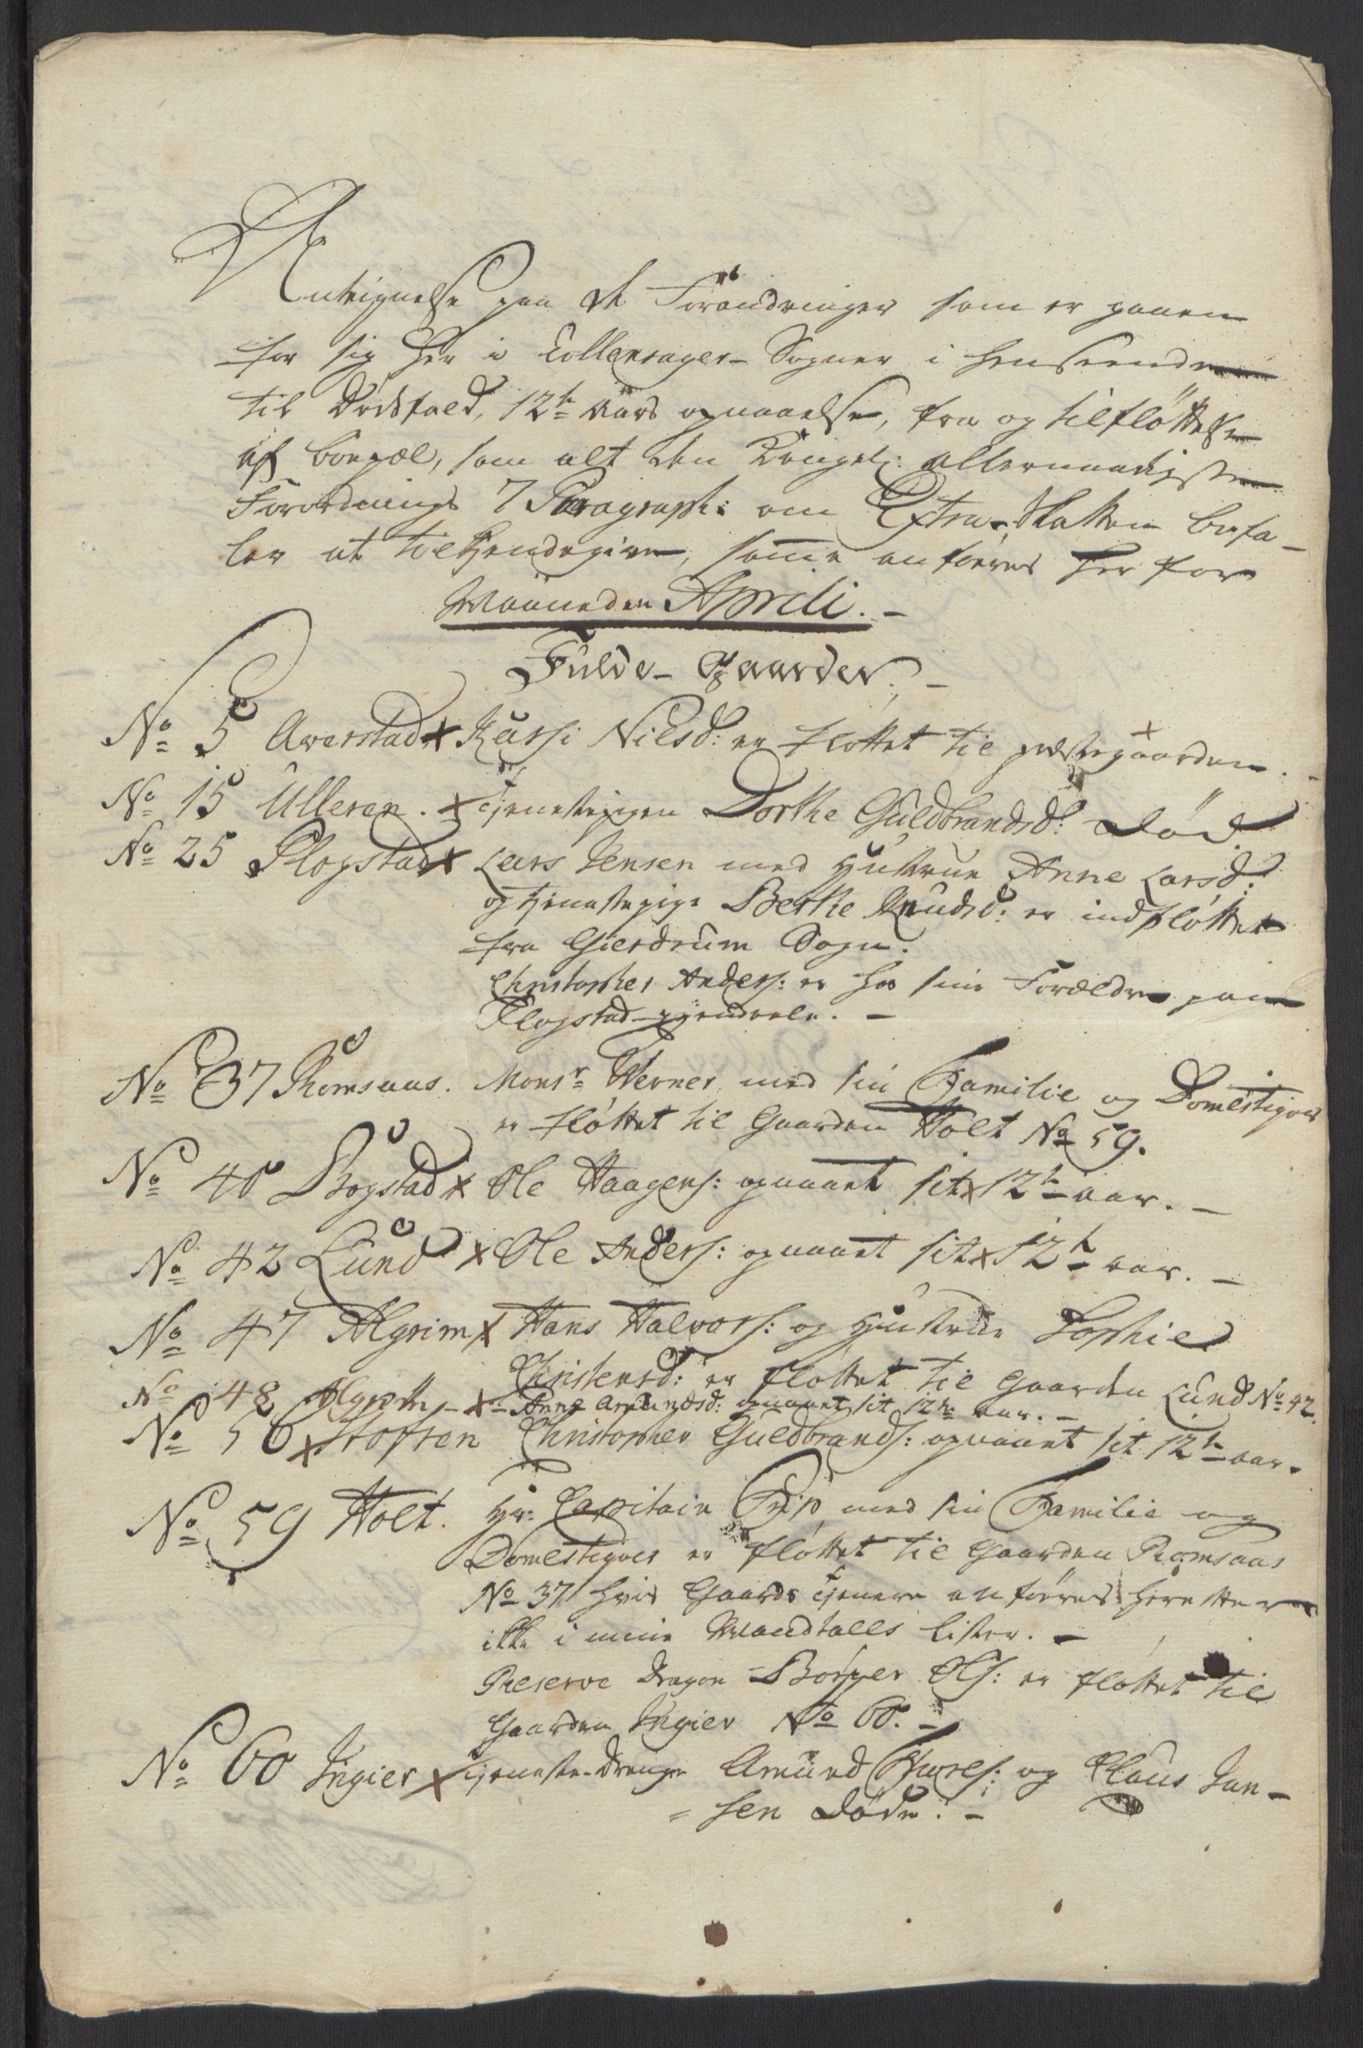 Antegnelse paa de Forandringer som er gaaen
for sig her i Ullensager Sogner i henseende
til Dødsfald, 12te Aars opnaaelse, fra og tilfløttelse
af boepæl, som alt den Kongel: allernaadigste
Forordnings 7 Paragraph: om Extra-Skatten befa-
ler at tilkiendegive, samme anføeres her for
Maaneden Aprili. -
Fulde-Gaarder. -
No 5 Averstad x Kersti Nielsd: er fløttet til præstegaarden. -
No 15 Ulleren. x Tjenestepigen Dorthe Guldbrandsd: død.
No 25 Flogstad x Lars Jensen med Hustrue Anne Larsd:
og tjenestepige Berthe Knudsd: er indfløttet
fra Gierdrum Sogn.
Christopher Anders: er hos sine Forældre paa
Flogstad-gjendeele. -
No 37 Romsaas. Monsr Werner med sin Familie og Domestiqver
er fløttet til Gaarden Holt No 59.
No 40 Bogstad x Ole Haagens: opnaaet sit x 12te aar. -
No 42 Lund x Ole Anders: opnaaet sit x 12te aar. -
No 47 Algrim x Hans Halvors: og Hustrue Sophie
Christensd: er fløttet til Gaarden Lund No 42.
No 48 Algrim - x Anne Amundsd: opnaaet sit 12te aar. -
No 50 x Stofsen Christopher Guldbrands: opnaaet sit 12te aar.
No 59 Holt. Hr: Capitain Grip med sin Familie og
Domestiqver er fløttet til Gaarden Romsaas
No 37 hvis Gaards Tjenere anføeres herefter
ikke i mine Mandtalls Lister. -
Reserve Dragon Børger Ols: er fløttet til
Gaarden Ingier No 60. -
No 60 Ingier x Tjeneste-Drenge Amund Thures: og Claus Jan-
= sen døde. -